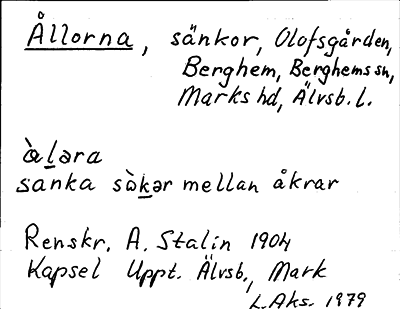 Ållorna, sänkor, Olofsgården,
Berghem, Berghems sn,
Marks hd, Älvsb. l.
àlara
sanka sòkər mellan åkrar
Renskr. A. Stalin 1904
Kapsel Uppt. Älvsb., Mark
L. Aks. 1979